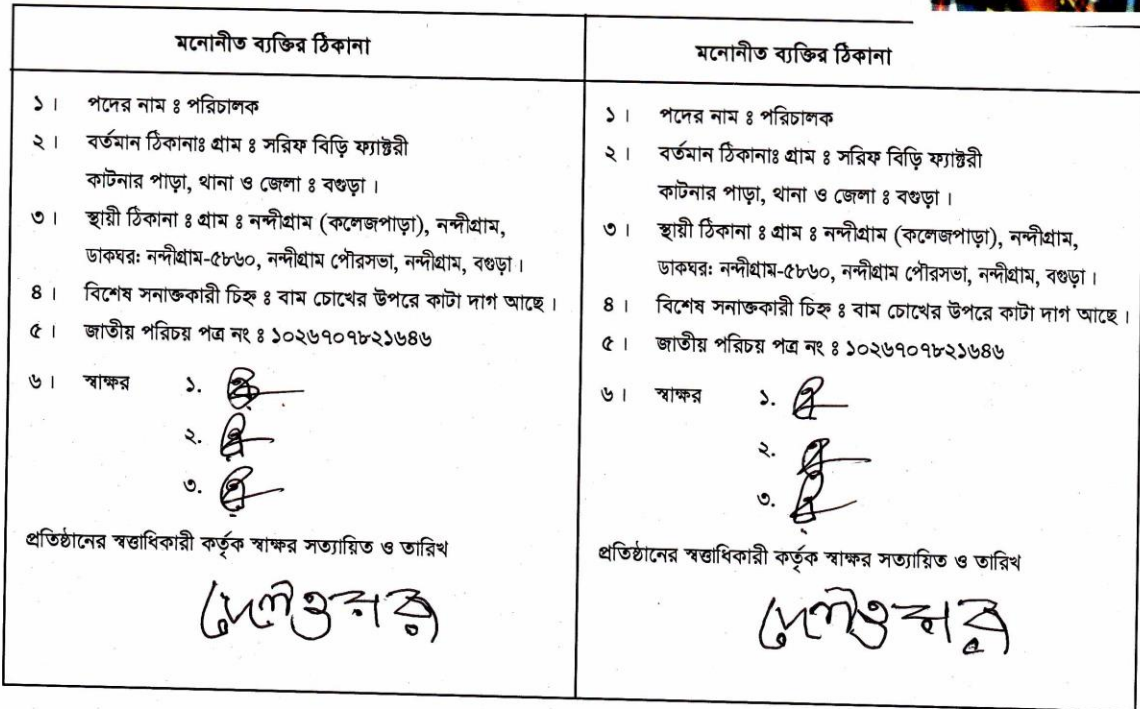 মনোনীত ব্যক্তির ঠিকানা
১। পদের নাম ঃ পরিচালক
২। বর্তমান ঠিকানাঃ গ্রাম ঃ সরিফ বিড়ি ফ্যাক্টরী
কাটনার পাড়া, থানা ও জেলা ঃ বগুড়া।
৩। স্থায়ী ঠিকানা ঃ গ্রাম ঃ নন্দীগ্রাম (কলেজপাড়া), নন্দীগ্রাম,
ডাকঘর: নন্দীগ্রাম-৫৮৬০, নন্দীগ্রাম পৌরসভা, নন্দীগ্রাম, বগুড়া।
৪। বিশেষ সনাক্তকারী চিহ্ন ঃ বাম চোখের উপরে কাটা দাগ আছে।
৫। জাতীয় পরিচয় পত্র নং ঃ ১০২৬৭০৭৮২১৬৪৬
৬। স্বাক্ষর ১.
২.
৩.
প্রতিষ্ঠানের স্বত্তাধিকারী কর্তৃক স্বাক্ষর সত্যায়িত ও তারিখ
মনোনীত ব্যক্তির ঠিকানা
১। পদের নাম ঃ পরিচালক
২। বর্তমান ঠিকানাঃ গ্রাম ঃ সরিফ বিড়ি ফ্যাক্টরী
কাটনার পাড়া, থানা ও জেলা ঃ বগুড়া।
৩। স্থায়ী ঠিকানা ঃ গ্রাম ঃ নন্দীগ্রাম (কলেজপাড়া), নন্দীগ্রাম,
ডাকঘর: নন্দীগ্রাম-৫৮৬০, নন্দীগ্রাম পৌরসভা, নন্দীগ্রাম, বগুড়া।
৪। বিশেষ সনাক্তকারী চিহ্ন ঃ বাম চোখের উপরে কাটা দাগ আছে।
৫। জাতীয় পরিচয় পত্র নং ঃ ১০২৬৭০৭৮২১৬৪৬
৬। স্বাক্ষর ১.
২.
৩.
প্রতিষ্ঠানের স্বত্তাধিকারী কর্তৃক স্বাক্ষর সত্যায়িত ও তারিখ